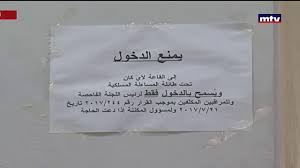 mtv
يمنع الدخول
إلى القاعة لأي كان
تحت طائلة المساءلة المسلكية
ويُسمح بالدخول فقط لرئيس اللجنة الفاحصة
والمراقبين المكلفين بموجب القرار رقم ٢٠١٧/٢٤٤ تاريخ
٢٠١٧/٧/٢١ ولمسؤول المكننة إذا دعت الحاجة